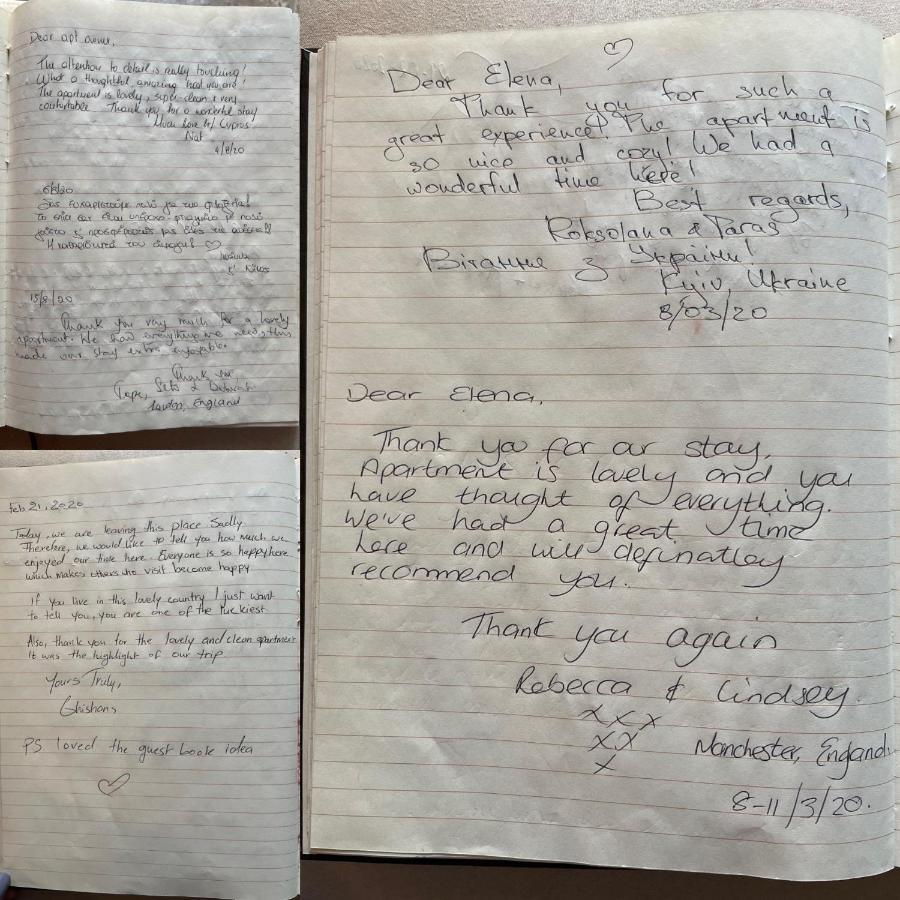 Dear apt owner,
The attention to detail is really touching!
What a thoughtful amazing host you are!
The apartment is lovely, super clean & very
comfortable. Thank you for a wonderful stay
Much love from Cyprus
Nat
4/8/20
6/8/20
Σας ευχαριστούμε πολύ για την φιλοξενία!
Το σπίτι σας είναι υπέροχο! φτιαγμένο με πολύ
Η καθαριότητα του
15/8/20
Thank you very much for a lovely
apartment. We had everything we need, this
made our stay extra enjoyable.
Thank you,
London, England
Feb 21, 2020
Today, we are leaving this place Sadly
Therefore, we would like to tell you how much we
enjoyed our time here. Everyone is so happy here
which makes others who visit become happy
If you live in this lovely country I just want
to tell you, you are one of the luckiest
Also, thank you for the lovely and clean apartment
It was the highlight of our trip
Yours Truly,
Ghishans
PS loved the guest booke idea
Dear Elena,
Thank you for such a
great experience! The apartment is
so nice and cozy! We had a
wonderful time here!
Best regards,
Roksolana & Taras
Вітання з України!
Kyiv, Ukraine
8/03/20
Dear Elena,
Thank you for our stay,
Apartment is lovely and you
have thought of everything.
We've had a great time
here and will definatley
recommend you.
Thank you again
Rebecca & Lindsey.
xxx
xx
x
Manchester, England.
8-11/3/20.